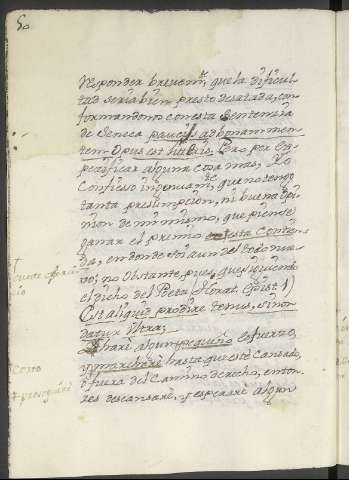 50
Responder brevem.te, que la dificul
tad seria bien presto desatada, con
formandonos con esta Sentensia
de Seneca paucis ad bonam men
tem Opus est literis. Pero por es
pecificar alguna cosa mas, Yo
Confiesso ingenuam.te que no tengo
tanta presumpcion, ni buena opi
nion de mi mismo, que piense
ganar el premio en esta Contien
da, en donde estoi aun del todo nue
vo; no obstante, pues, que siguiendo
el dicho del Poeta (Horat. Epist. 1)
Est aliquid prodire tenus, si non
datur Ultra;
Haré algun pequeño esfuerzo,
y marcharé hasta que esté Cansado,
ò fuera del Camino derecho, enton
ces descansaré, y esperaré algun
Corro